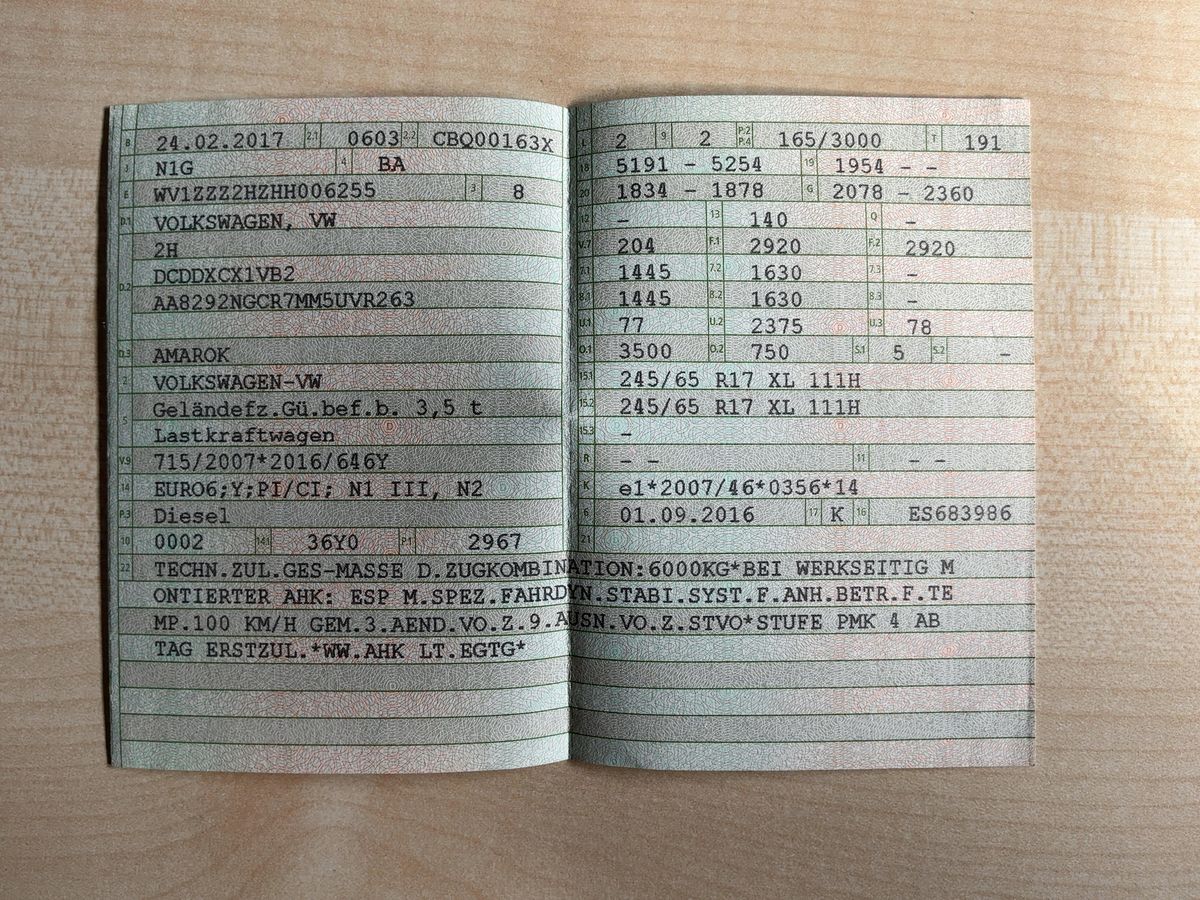 B 24.02.2017 2.1 0603 2.2 CBQ00163X
J N1G 4 BA
E WV1ZZZ2HZHH006255 3 8
D.1 VOLKSWAGEN, VW
2H
D.2 DCDDXCX1VB2
AA8292NGCR7MM5UVR263
D.3 AMAROK
2 VOLKSWAGEN-VW
5 Geländefz.Gü.bef.b. 3,5 t
Lastkraftwagen
V.9 715/2007*2016/646Y
14 EURO6;Y;PI/CI; N1 III, N2
P.3 Diesel
10 0002 14.1 36Y0 P.1 2967
L 2 9 2 P.2 P.4 165/3000 T 191
18 5191 - 5254 19 1954 - -
20 1834 - 1878 G 2078 - 2360
12 - 13 140 Q -
V.7 204 F.1 2920 F.2 2920
7.1 1445 7.2 1630 7.3 -
8.1 1445 8.2 1630 8.3 -
U.1 77 U.2 2375 U.3 78
O.1 3500 O.2 750 S.1 5 S.2 -
15.1 245/65 R17 XL 111H
15.2 245/65 R17 XL 111H
15.3 -
R - - 11 - -
K e1*2007/46*0356*14
6 01.09.2016 17 K 16 ES683986
21
22 TECHN.ZUL.GES-MASSE D.ZUGKOMBINATION:6000KG*BEI WERKSEITIG M
ONTIERTER AHK: ESP M.SPEZ.FAHRDYN.STABI.SYST.F.ANH.BETR.F.TE
MP.100 KM/H GEM.3.AEND.VO.Z.9.AUSN.VO.Z.STVO*STUFE PMK 4 AB
TAG ERSTZUL.*WW.AHK LT.EGTG*